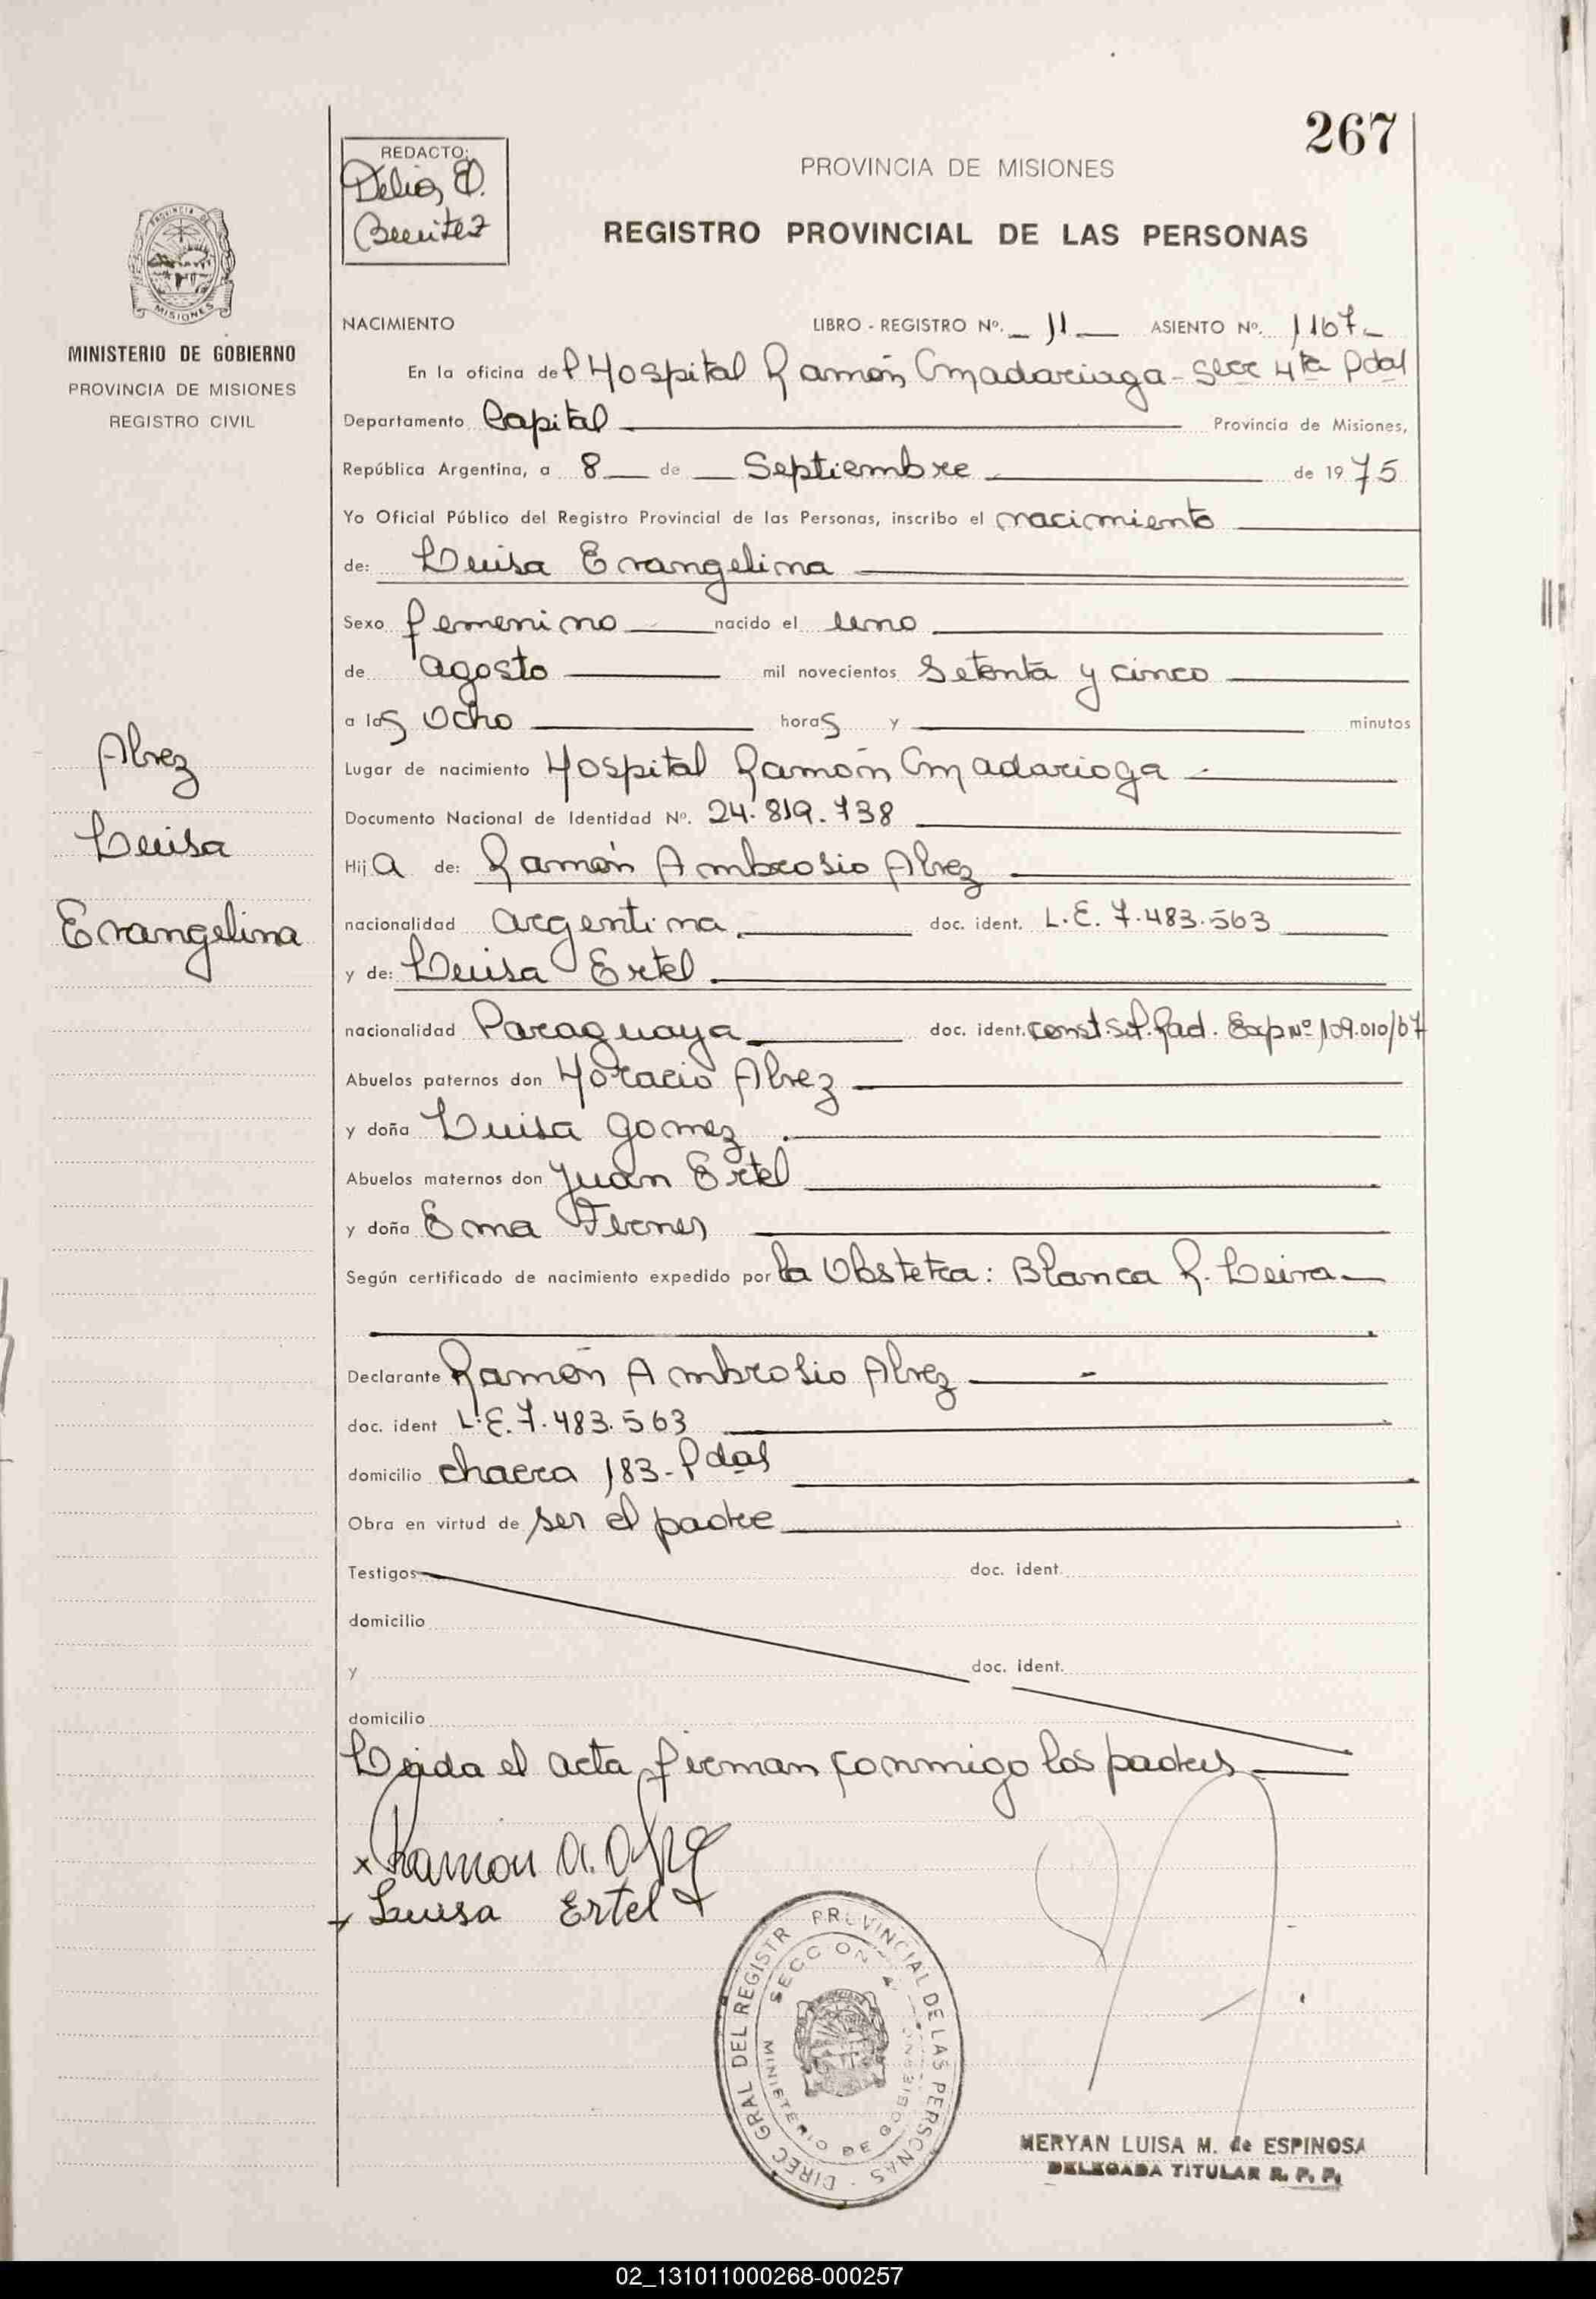 267
REDACTO:
Delia, E.
Benitez
PROVINCIA DE MISIONES
REGISTRO PROVINCIAL DE LAS PERSONAS
PROVINCIA DE
MISIONES
MINISTERIO DE GOBIERNO
PROVINCIA DE MISIONES
REGISTRO CIVIL
NACIMIENTO LIBRO - REGISTRO Nº. 11 ASIENTO Nº. 1167
En la oficina del Hospital Ramón Madariaga - Secc 4ta Pdas
Departamento Capital Provincia de Misiones,
República Argentina, a 8 de Septiembre de 1975
Yo Oficial Público del Registro Provincial de las Personas, inscribo el nacimiento
de: Luisa Evangelina
Sexo femenino nacido el uno
de agosto mil novecientos Setenta y cinco
a las Ocho horas y minutos
Lugar de nacimiento Hospital Ramón Madariaga
Documento Nacional de Identidad Nº. 24.819.738
Hija de: Ramón Ambrosio Alvez
nacionalidad argentina doc. ident. L.E. 7.483.563
y de: Luisa Ertel
nacionalidad Paraguaya doc. ident. Const. Rad. Exp Nº 109.010/67
Abuelos paternos don Horacio Alvez
y doña Luisa Gomez
Abuelos maternos don Juan Ertel
y doña Ema
Según certificado de nacimiento expedido por la Obstetra: Blanca R. Leiva
Declarante Ramón Ambrosio Alvez
doc. ident L.E. 7.483.563
domicilio chacra 183 - Pdas
Obra en virtud de ser el padre
Testigos doc. ident.
domicilio
y doc. ident.
domicilio
Leida el acta firman conmigo los padres
x Ramon A. Alvez
x Luisa Ertel
Alvez
Luisa
Evangelina
DIREC GRAL DEL REGISTR PROVINCIAL DE LAS PERSONAS
SECCION 4
MINISTERIO DE GOBIERNO
MERYAN LUISA M. de ESPINOSA
DELEGADA TITULAR R. P. P.
02_131011000268-000257